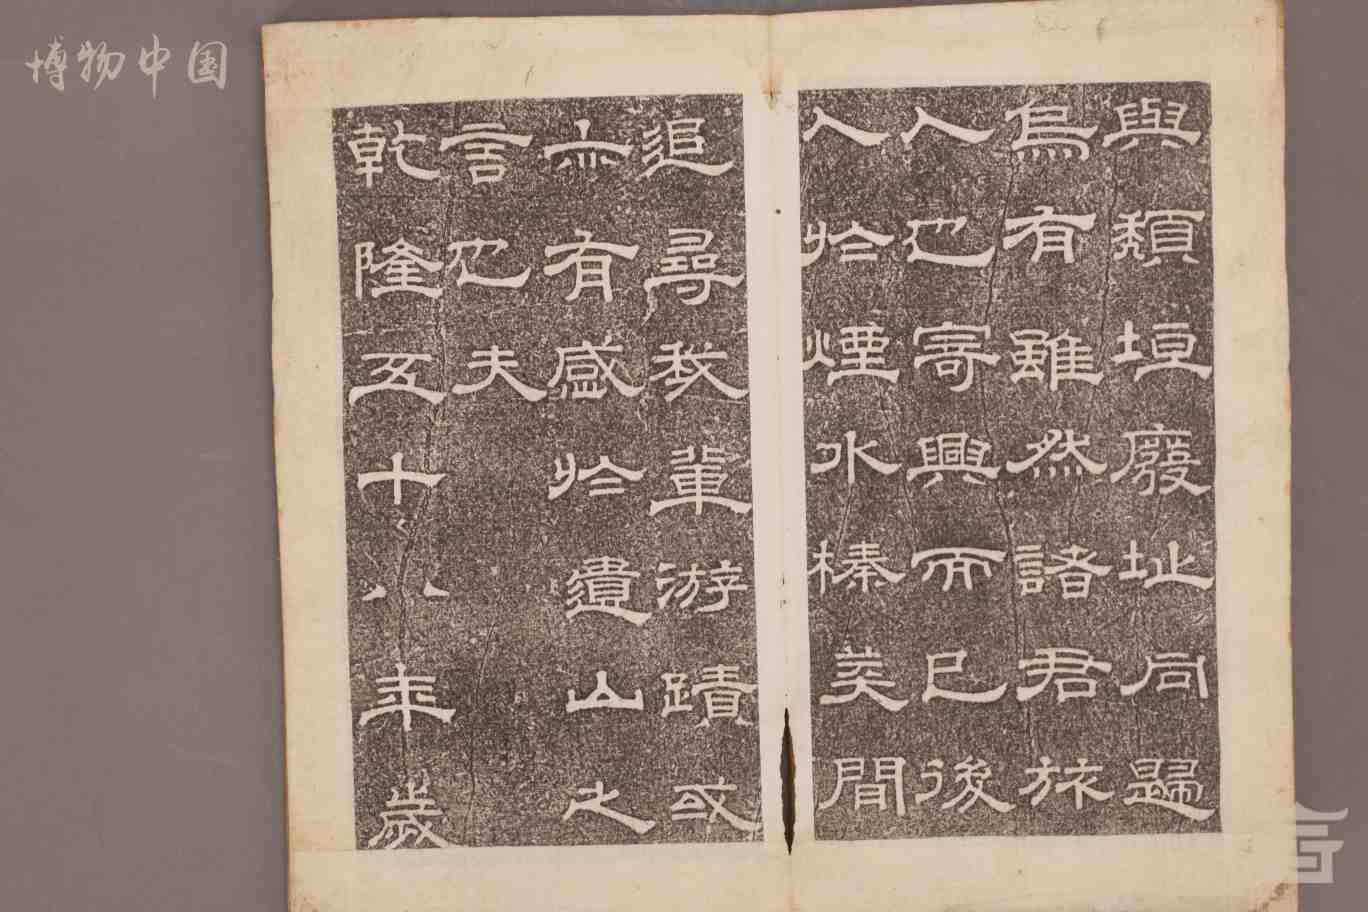 博物中国
與頹垣廢址同歸
烏有雖然諸君旅
人也寄興而已後
人於煙水榛莽間
追尋我輩游蹟或
亦有感於遺山之
言也夫
乾隆五十八年歲